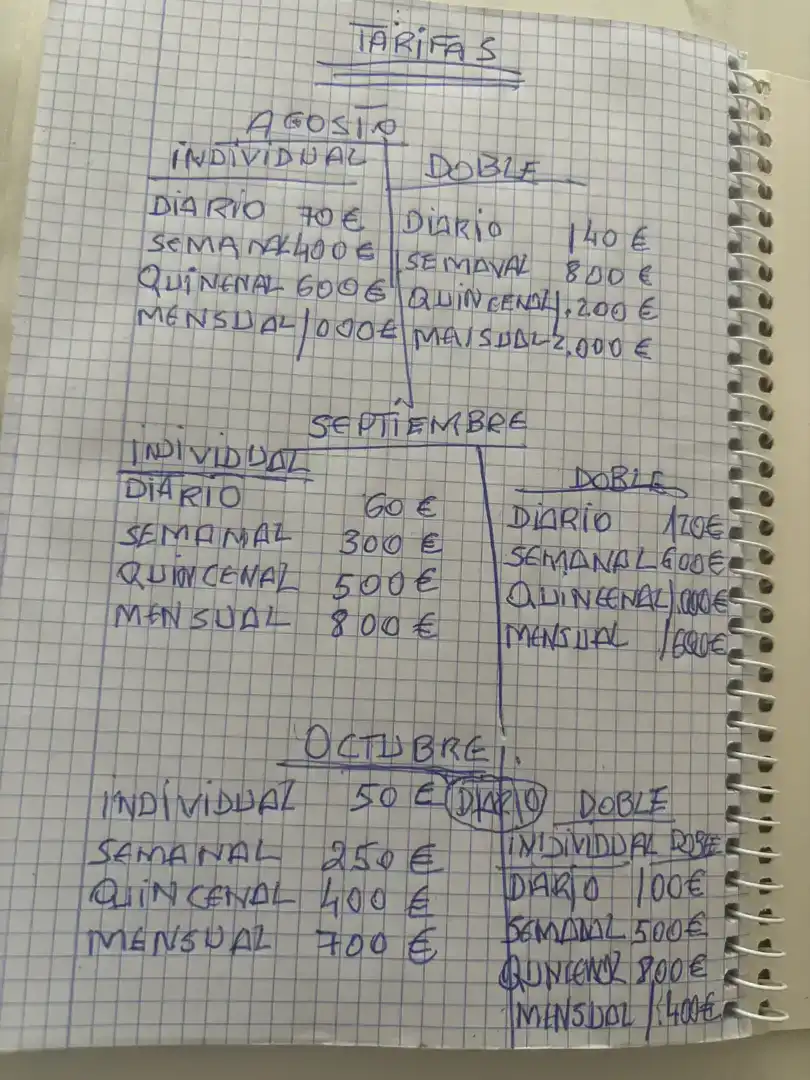 TARIFAS
AGOSTO
INDIVIDUAL
DIARIO 70 €
SEMANAL 400 €
QUINENAL 600 €
MENSUAL 1000 €
DOBLE
DIARIO 140 €
SEMANAL 800 €
QUINCENAL 1.200 €
MENSUAL 2.000 €
SEPTIEMBRE
INDIVIDUAL
DIARIO 60 €
SEMANAL 300 €
QUINCENAL 500 €
MENSUAL 800 €
DOBLE
DIARIO 120 €
SEMANAL 600 €
QUINCENAL 1.000 €
MENSUAL 1600 €
OCTUBRE
INDIVIDUAL 50 € DIARIO
SEMANAL 250 €
QUINCENAL 400 €
MENSUAL 700 €
DOBLE
INDIVIDUAL
DIARIO 100 €
SEMANAL 500 €
QUNCENAL 800 €
MENSUAL 1.400 €